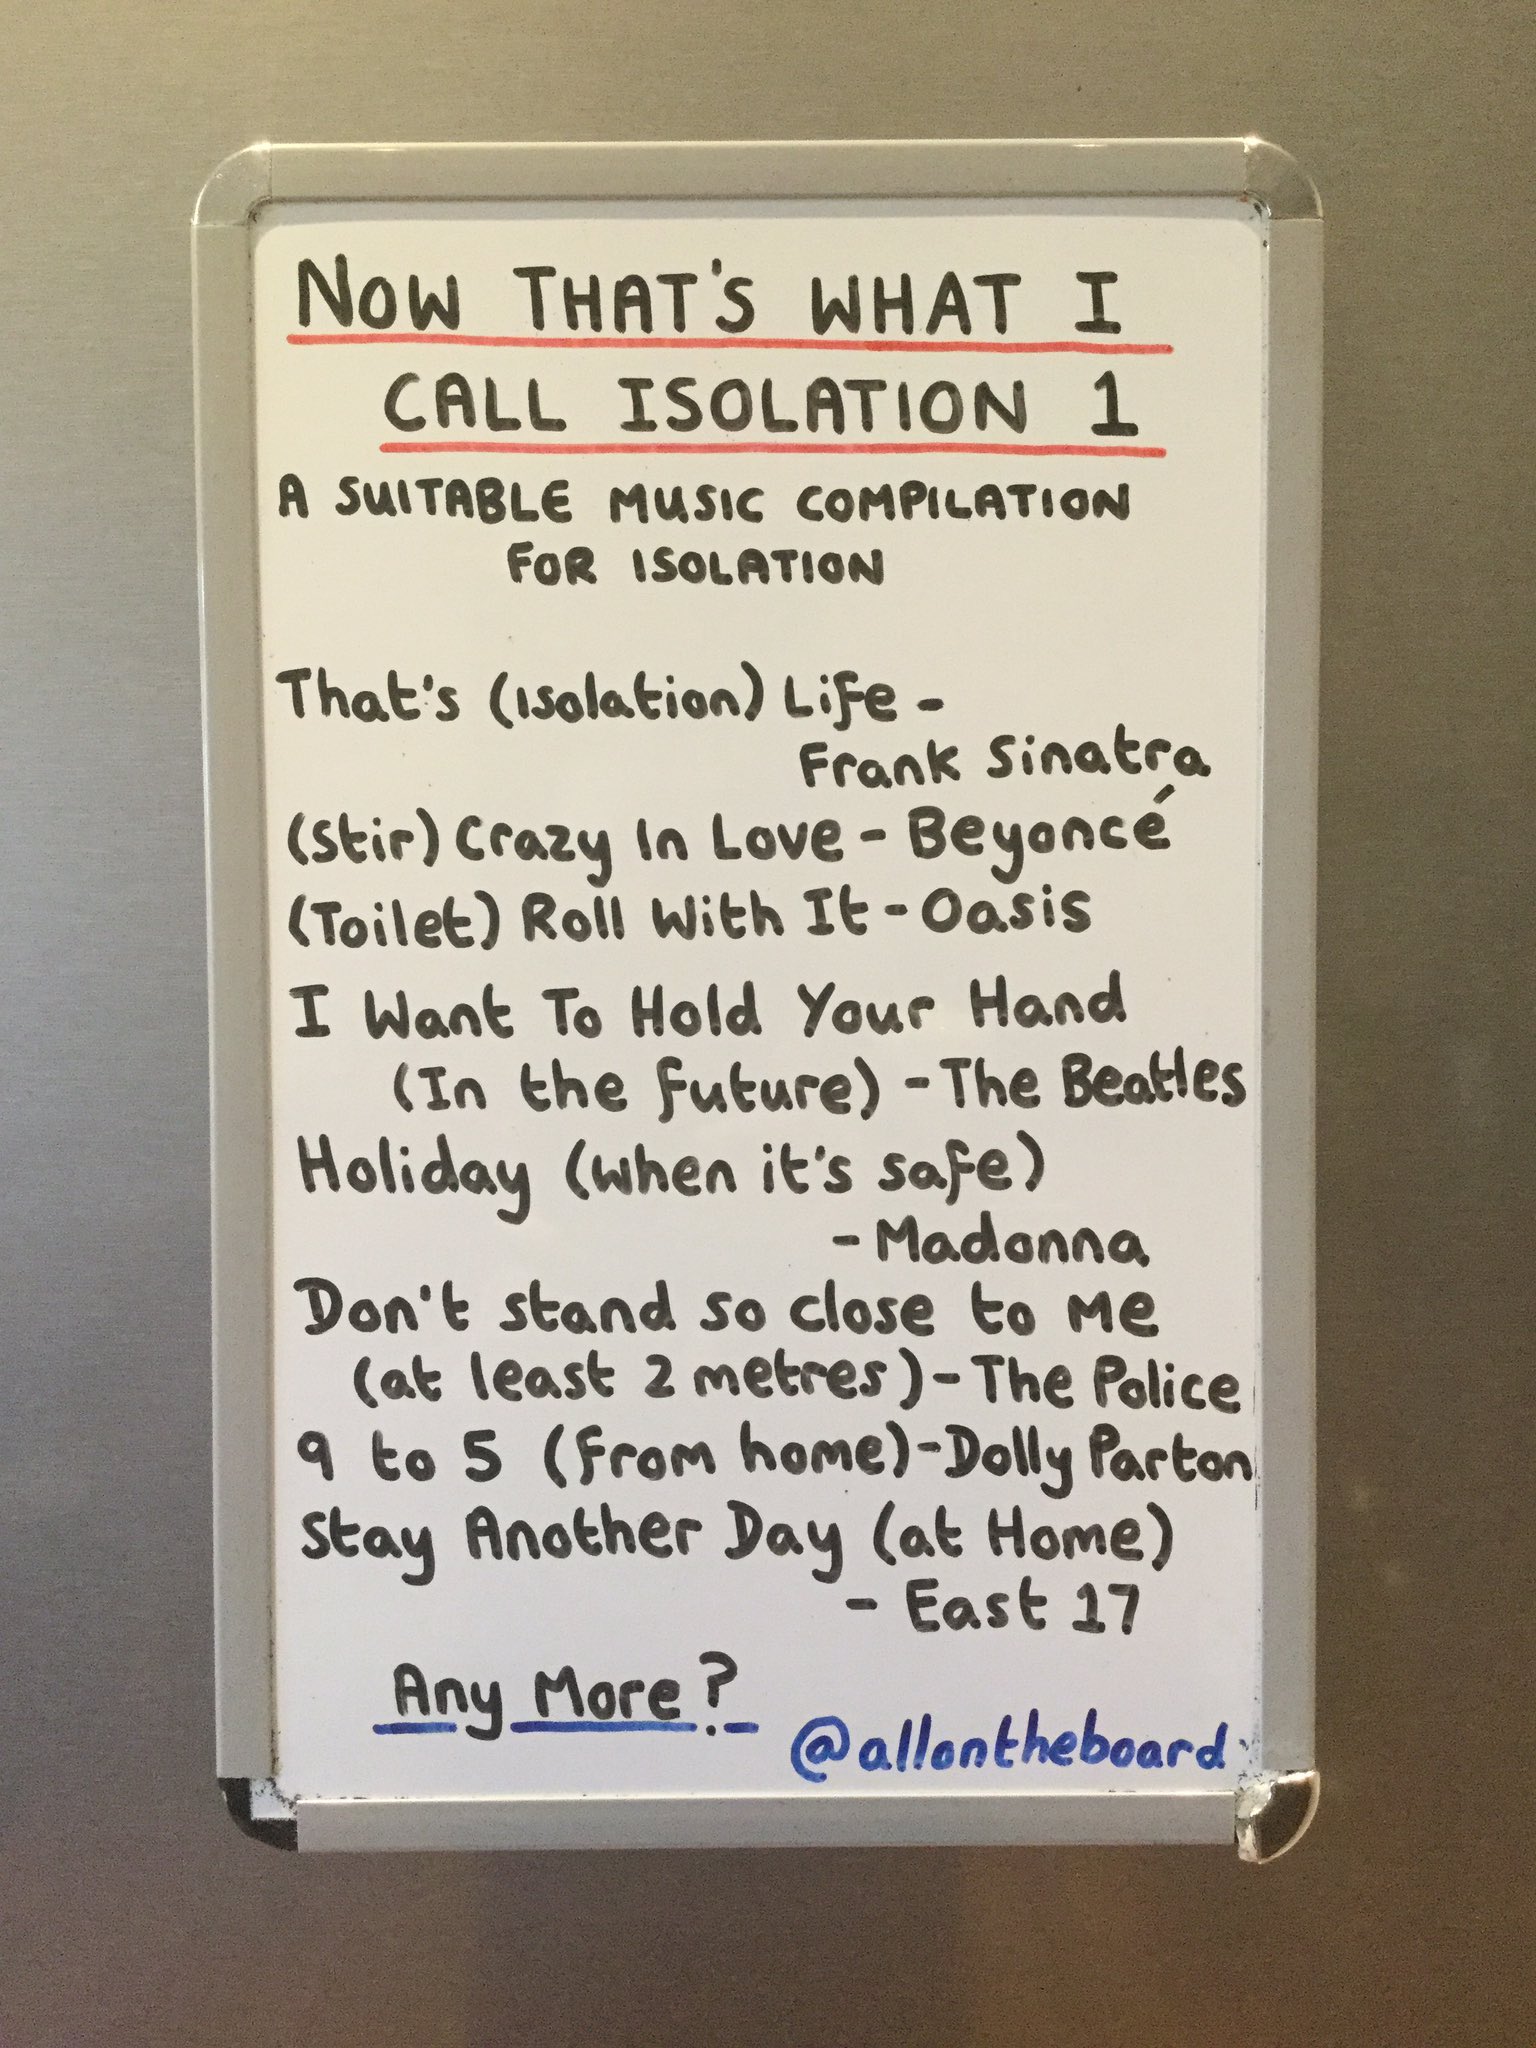 NOW THAT'S WHAT I
CALL ISOLATION 1
A SUITABLE MUSIC COMPILATION
FOR ISOLATION
That's (Isolation) Life -
Frank Sinatra
(Stir) Crazy In Love - Beyoncé
(Toilet) Roll With It - Oasis
I Want To Hold Your Hand
(In the future) - The Beatles
Holiday (when it's safe)
- Madonna
Don't stand so close to Me
(at least 2 metres) - The Police
9 to 5 (from home) - Dolly Parton
Stay Another Day (at Home)
- East 17
Any More?
@allontheboard